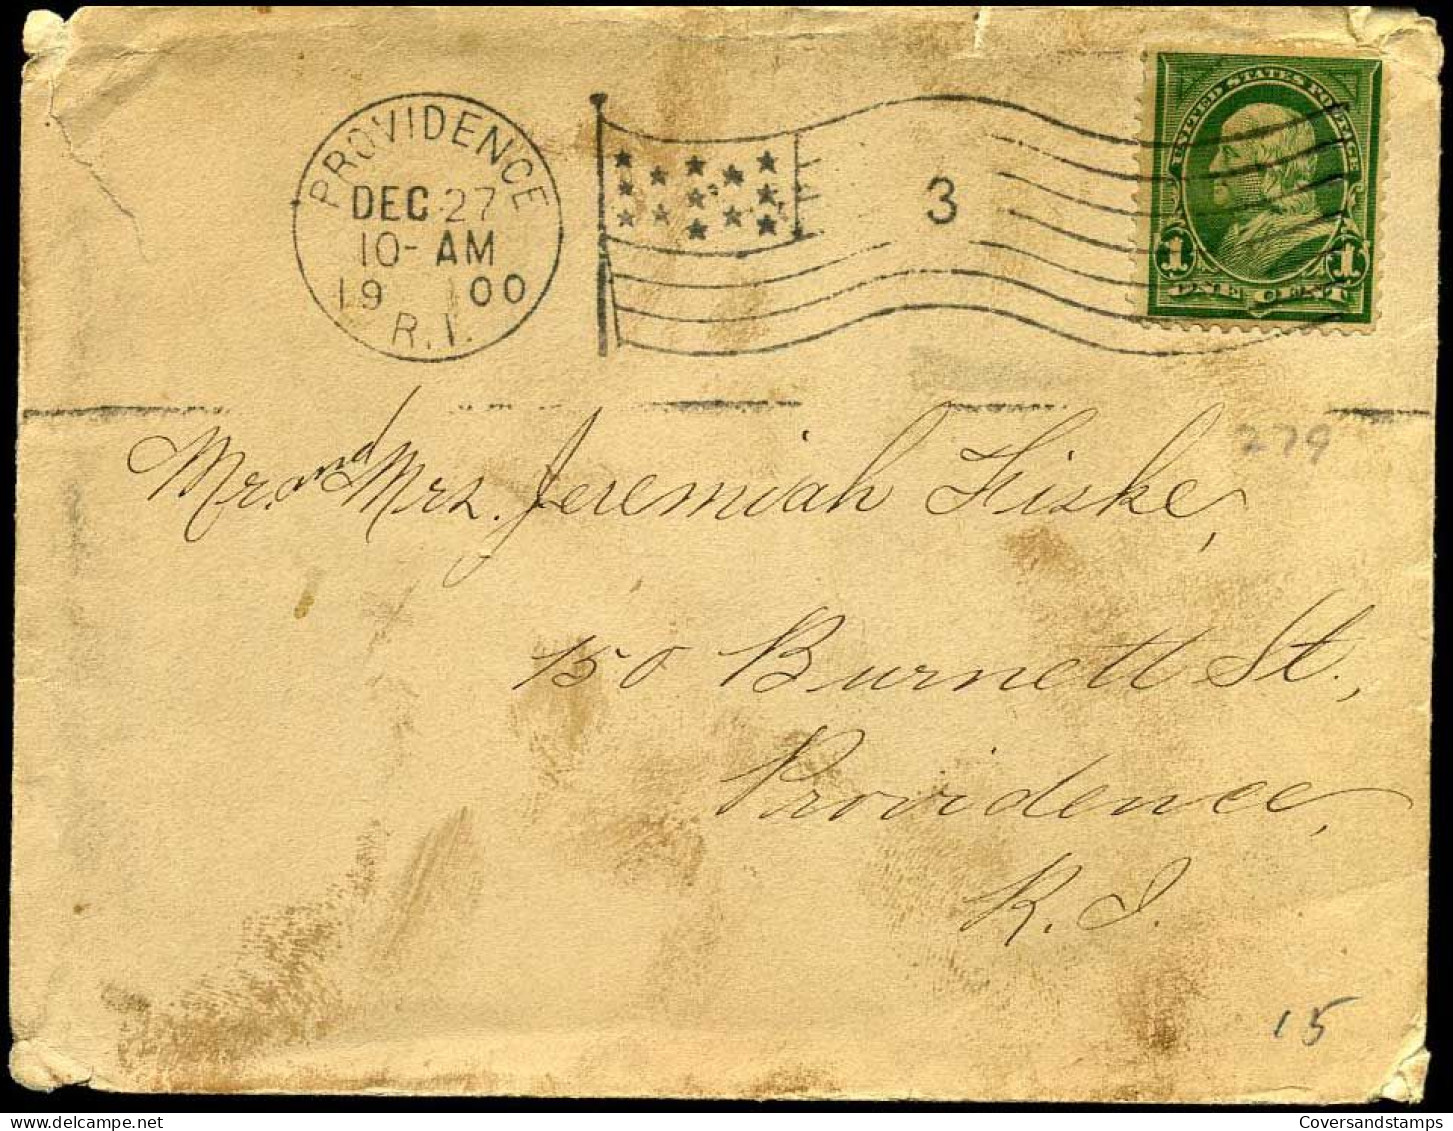 PROVIDENCE
DEC 27
10-AM
19 00
R.I.
3
UNITED STATES POSTAGE
1 1
ONE CENT
279
Mr. and Mrs. Jeremiah Fiske,
150 Burnett St.,
Providence,
R. I.
15
Coversandstamps